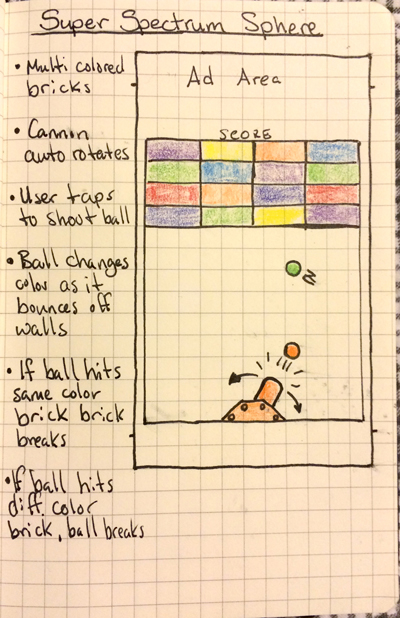 Super Spectrum Sphere
• Multi colored
bricks
• Cannon
auto rotates
• User taps
to shoot ball
• Ball changes
color as it
bounces off
walls
• If ball hits
same color
brick brick
breaks
• If ball hits
diff. color
brick, ball breaks
Ad Area
SCORE